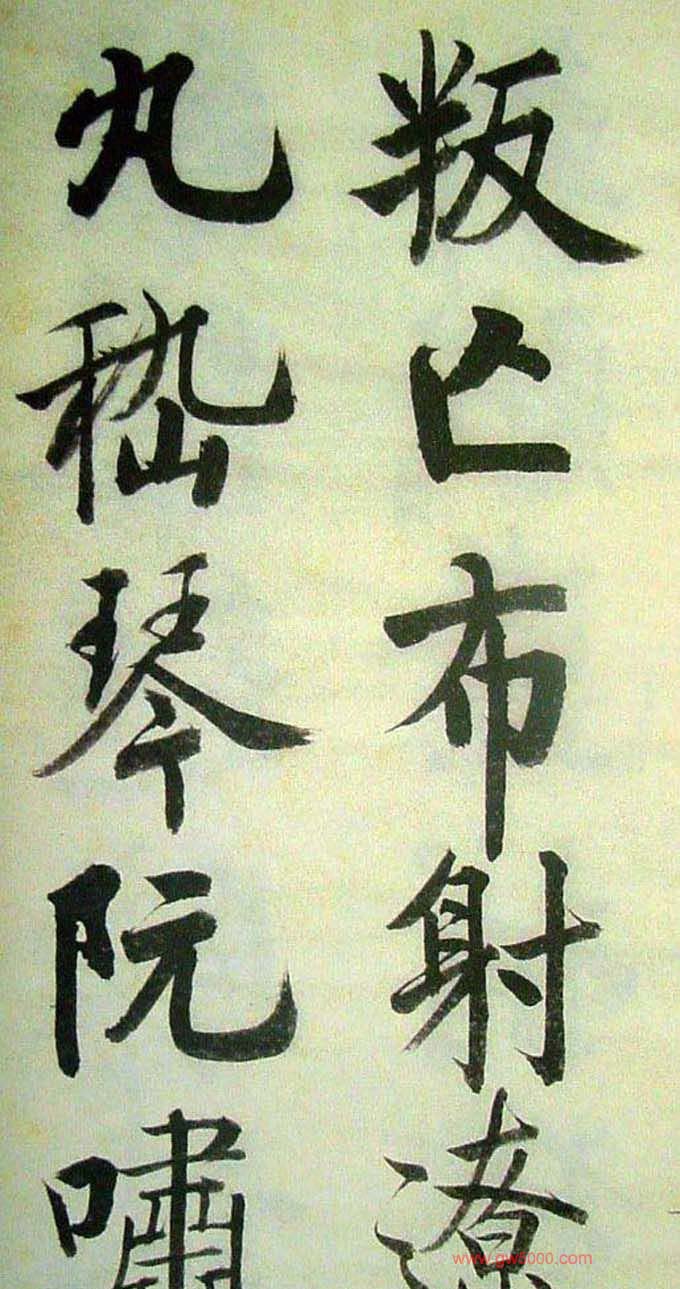 叛亡布射遼
丸嵇琴阮嘯
www.gw8000.com